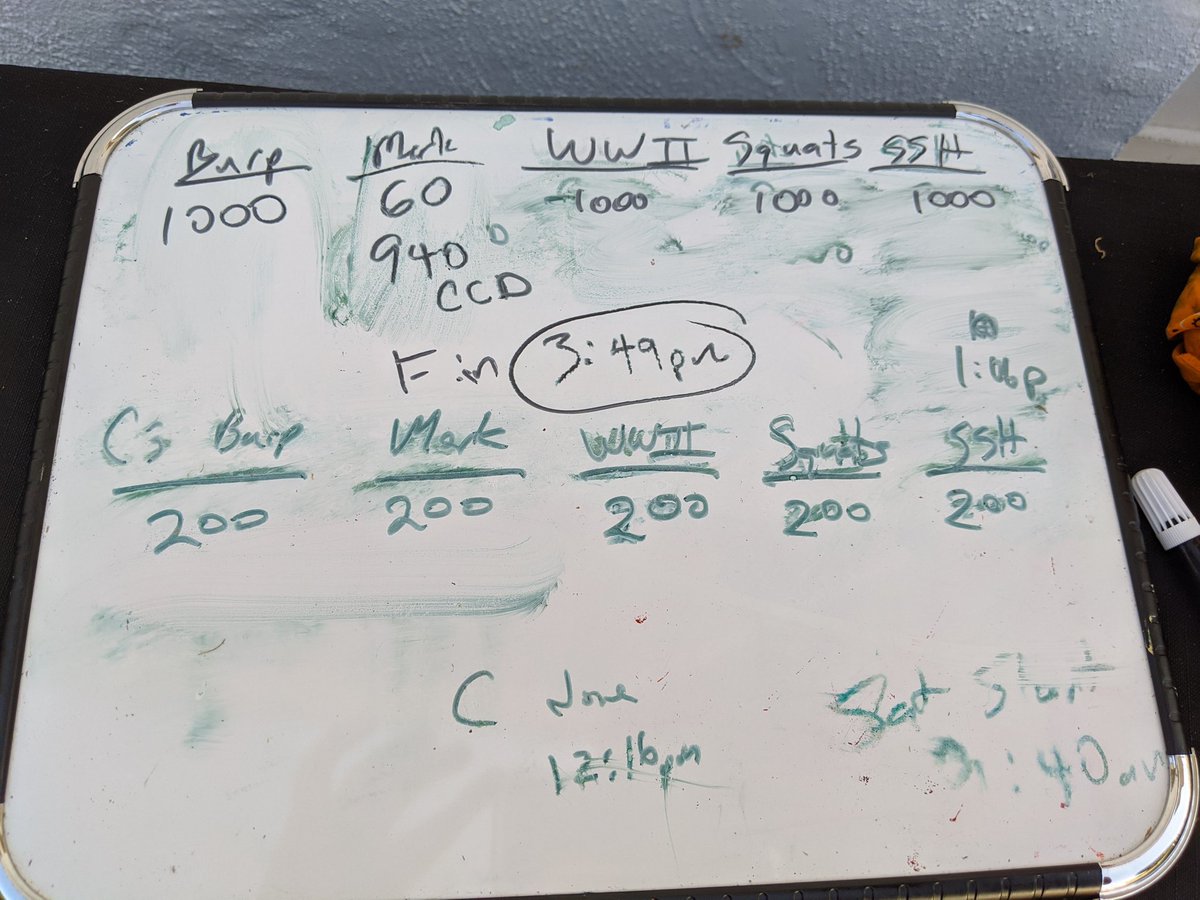 Burp Merk WWII Squats SSH
1000 60 1000 1000 1000
940
CCD
Fin 3:49pm
C's Burp Merk WWII Squats SSH
200 200 200 200 200
C done
12:16pm
Sat Start
:40am